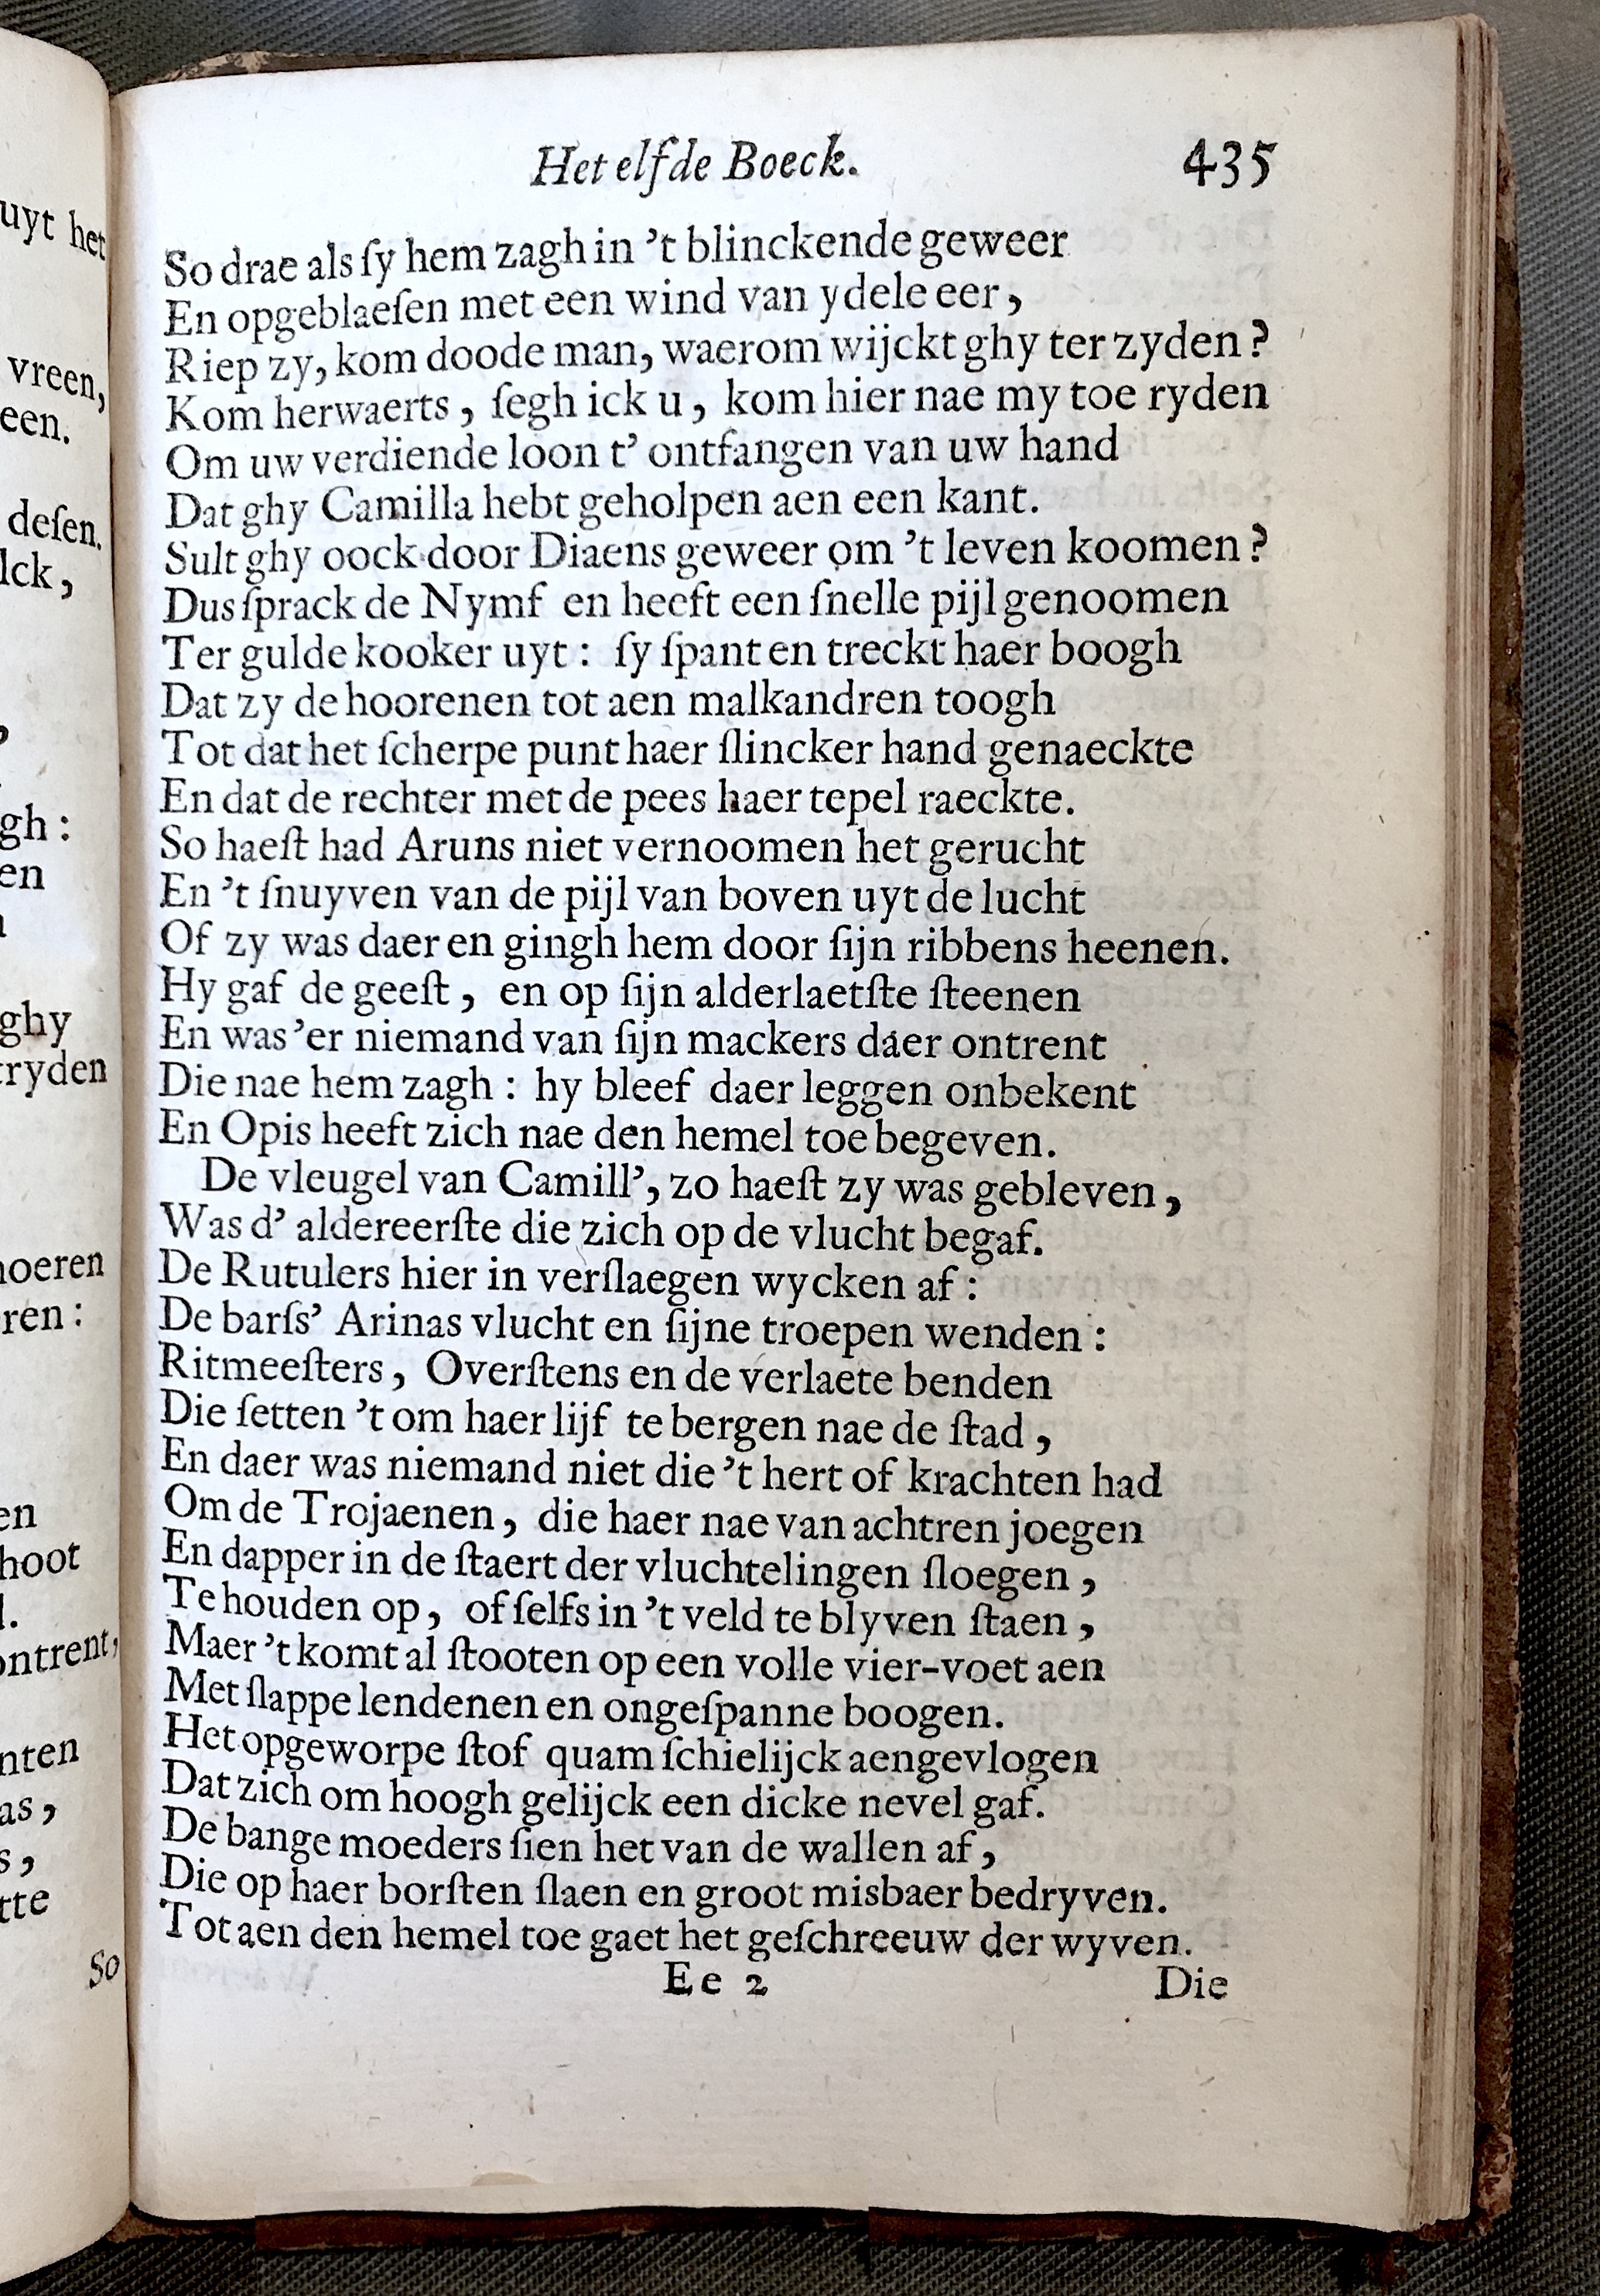 Het elfde Boeck. 435
So drae als ſy hem zagh in ’t blinckende geweer
En opgeblaeſen met een wind van ydele eer,
Riep zy, kom doode man, waerom wijckt ghy ter zyden?
Kom herwaerts, ſegh ick u, kom hier nae my toe ryden
Om uw verdiende loon t’ ontfangen van uw hand
Dat ghy Camilla hebt geholpen aen een kant.
Sult ghy oock door Diaens geweer om ’t leven koomen?
Dus ſprack de Nymf en heeft een ſnelle pijl genoomen
Ter gulde kooker uyt: ſy ſpant en treckt haer boogh
Dat zy de hoorenen tot aen malkandren toogh
Tot dat het ſcherpe punt haer ſlincker hand genaeckte
En dat de rechter met de pees haer tepel raeckte.
So haeſt had Aruns niet vernoomen het gerucht
En ’t ſnuyven van de pijl van boven uyt de lucht
Of zy was daer en gingh hem door ſijn ribbens heenen.
Hy gaf de geeſt, en op ſijn alderlaetſte ſteenen
En was ’er niemand van ſijn mackers daer ontrent
Die nae hem zagh: hy bleef daer leggen onbekent
En Opis heeft zich nae den hemel toe begeven.
De vleugel van Camill’, zo haeſt zy was gebleven,
Was d’ aldereerſte die zich op de vlucht begaf.
De Rutulers hier in verſlaegen wycken af:
De barſs’ Arinas vlucht en ſijne troepen wenden:
Ritmeeſters, Overſtens en de verlaete benden
Die ſetten ’t om haer lijf te bergen nae de ſtad,
En daer was niemand niet die ’t hert of krachten had
Om de Trojaenen, die haer nae van achtren joegen
En dapper in de ſtaert der vluchtelingen ſloegen,
Te houden op, of ſelfs in ’t veld te blyven ſtaen,
Maer ’t komt al ſtooten op een volle vier-voet aen
Met ſlappe lendenen en ongeſpanne boogen.
Het opgeworpe ſtof quam ſchielijck aengevlogen
Dat zich om hoogh gelijck een dicke nevel gaf.
De bange moeders ſien het van de wallen af,
Die op haer borſten ſlaen en groot misbaer bedryven.
Tot aen den hemel toe gaet het geſchreeuw der wyven.
Ee 2 Die